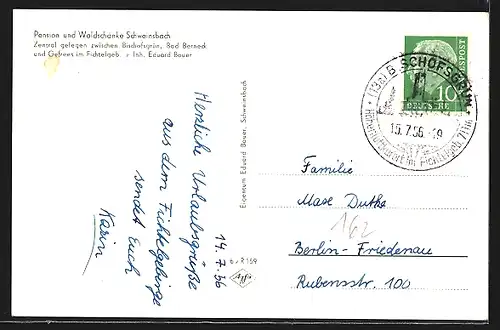 Pension und Waldschänke Schweinsbach
Zentral gelegen zwischen Bischofsgrün, Bad Berneck
und Gefrees im Fichtelgeb. Inh. Eduard Bauer
Herzliche Urlaubsgrüße
aus dem Fichtelgebirge
sendet Euch
Karin
14.7.56
Eigentum Eduard Bauer, Schweinsbach
6 v R 159
(13a) BISCHOFSGRÜN
15.7.56
Höhenluftkurort im Fichtelgeb.
10
DEUTSCHE BUNDESPOST
Familie
Max Dutke
162
Berlin-Friedenau
Rubensstr. 100